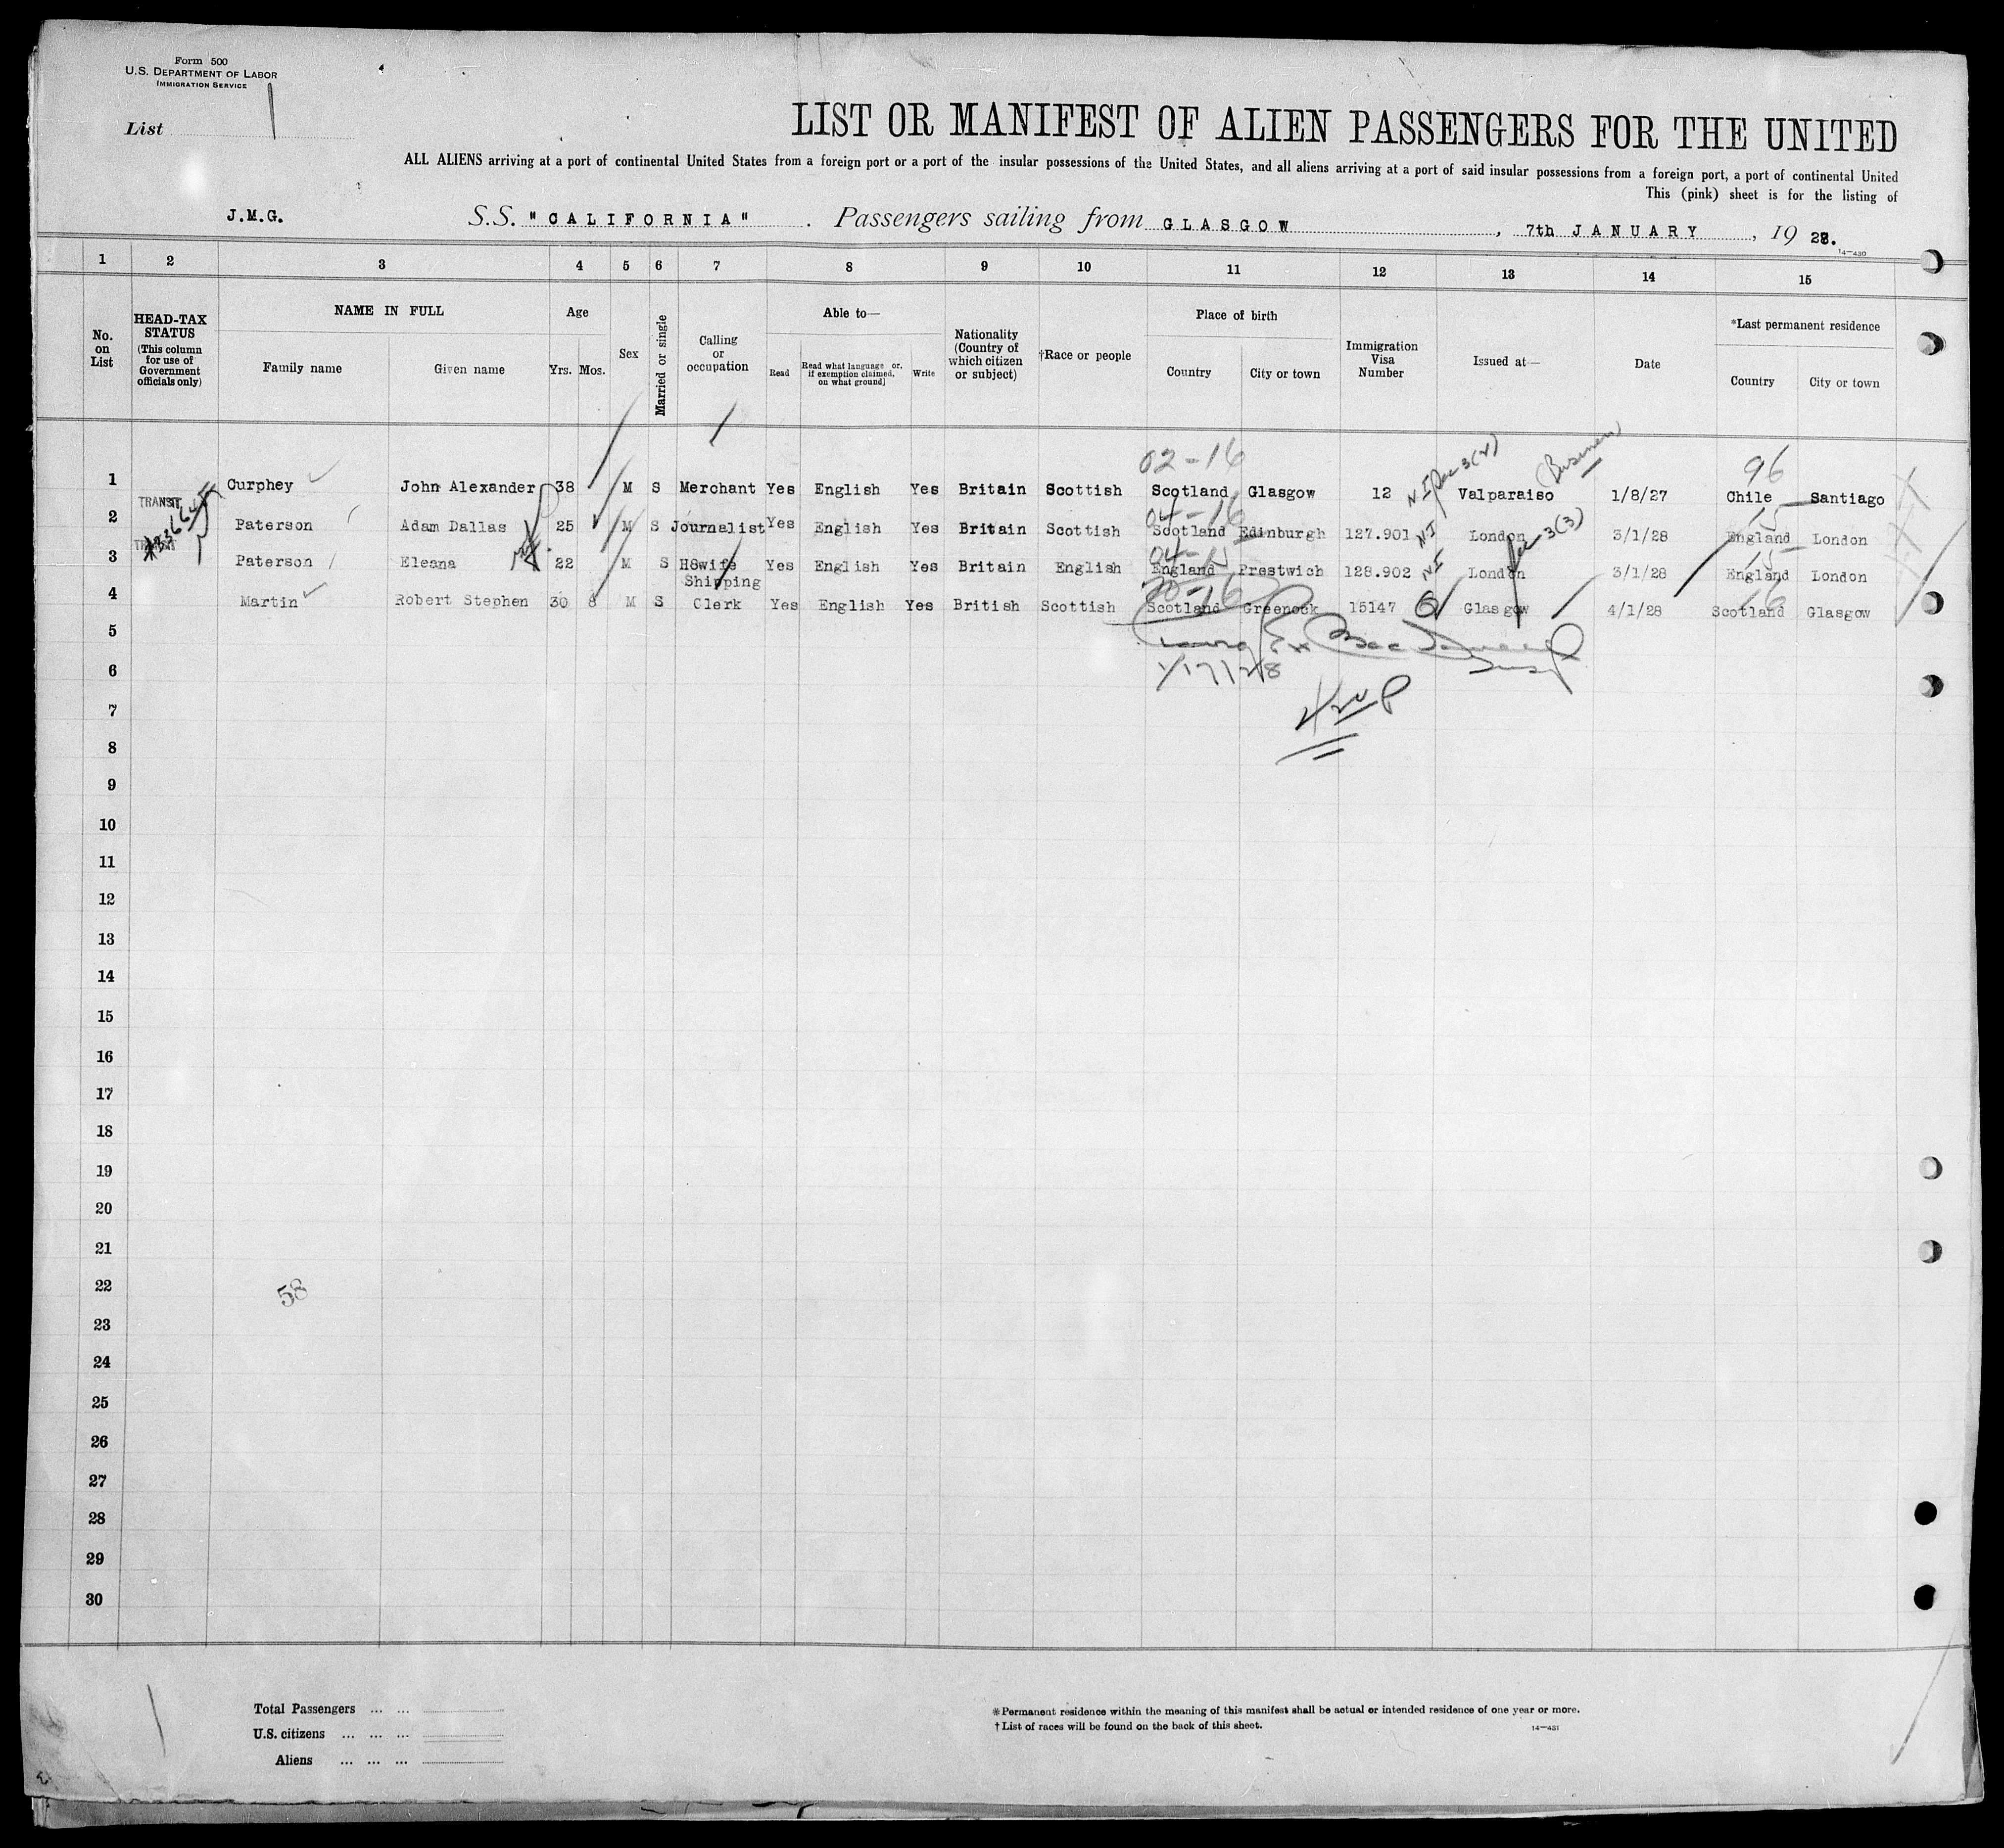 Form 500
U.S. DEPARTMENT OF LABOR
IMMIGRATION SERVICE
List 1
LIST OR MANIFEST OF ALIEN PASSENGERS FOR THE UNITED
ALL ALIENS arriving at a port of continental United States from a foreign port or a port of the insular possessions of the United States, and all aliens arriving at a port of said insular possessions from a foreign port, a port of continental United
This (pink) sheet is for the listing of
J.M.G. S.S. "CALIFORNIA" . Passengers sailing from GLASGOW , 7th JANUARY , 19 28.
14—430
1 2 3 4 5 6 7 8 9 10 11 12 13 14 15
No. on List
HEAD-TAX STATUS
(This column for use of Government officials only)
NAME IN FULL
Family name Given name
Age
Yrs. Mos.
Sex
Married or single
Calling or occupation
Able to—
Read Read what language or, if exemption claimed, on what ground] Write
Nationality (Country of which citizen or subject)
†Race or people
Place of birth
Country City or town
Immigration Visa Number
Issued at—
Date
*Last permanent residence
Country City or town
02-16 96
1 Curphey John Alexander 38 M S Merchant Yes English Yes Britain Scottish Scotland Glasgow 12 Valparaiso 1/8/27 Chile Santiago
Business
TRANSIT
04-16 15
2 Paterson Adam Dallas 25 M S Journalist Yes English Yes Britain Scottish Scotland Edinburgh 127.901 NI London 3/1/28 England London
TRANSIT
04-15 15
3 Paterson Eleana 22 M S H8wife Yes English Yes Britain English England Prestwich 128.902 NI London 3/1/28 England London
20-16 16
4 Martin Robert Stephen 30 8 M S Shipping Clerk Yes English Yes British Scottish Scotland Greenock 15147 Q Glasgow 4/1/28 Scotland Glasgow
5
1/17/28
6
7
8
9
10
11
12
13
14
15
16
17
18
19
20
21
22
58
23
24
25
26
27
28
29
30
Total Passengers ... ...
U.S. citizens ... ... ...
Aliens ... ... ...
*Permanent residence within the meaning of this manifest shall be actual or intended residence of one year or more.
†List of races will be found on the back of this sheet.
14—431